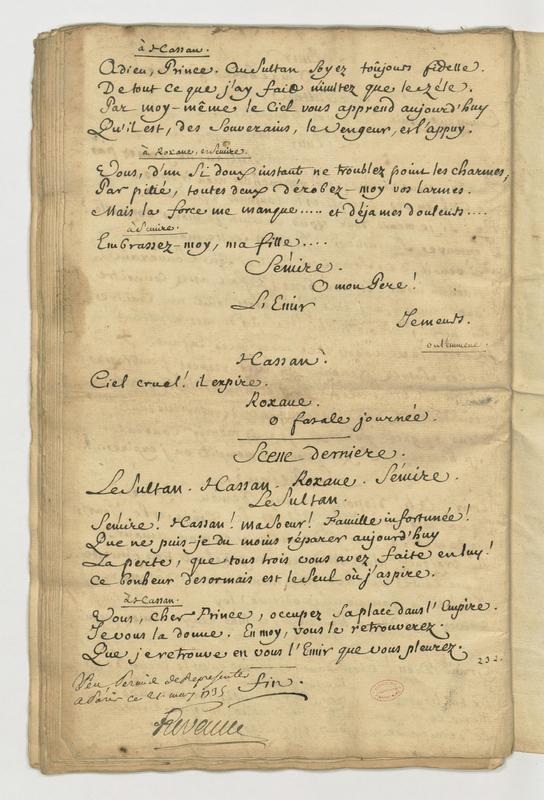 à Hassan.
Adieu, Prince. Au Sultan soyez toûjours fidelle.
De tout ce que j'ay fait n'imitez que le zéle.
Par moy-même le Ciel vous apprend aujourd'huy
Qu'il est, des Souverains, le vengeur, et l'appuy.
à Roxane, et Sémire.
Vous, d'un si doux instant ne troublez point les charmes,
Par pitié, toutes deux dérobez-moy vos larmes.
Mais la force me manque..... et déja mes douleurs....
à Sémire.
Embrassez-moy, ma fille....
Sémire.
O mon Pere!
L'Emir
Je meurs.
on l'emmene.
Hassan.
Ciel cruel! il expire.
Roxane.
O fatale journée.
Scene derniere.
Le Sultan. Hassan. Roxane. Sémire.
Le Sultan.
Sémire! Hassan! ma Soeur! Famille infortunée!
Que ne puis-je du moins réparer aujourd'huy
La perte, que tous trois vous avez faite en luy!
Ce bonheur desormais est le seul où j'aspire.
à Hassan.
Vous, cher Prince, occupez sa place dans l'Empire.
Je vous la donne. En moy, vous le retrouverez.
Que je retrouve en vous l'Emir que vous pleurez.
232.
fin.
Veu Permis de Representer
a Paris ce 21. may 1735